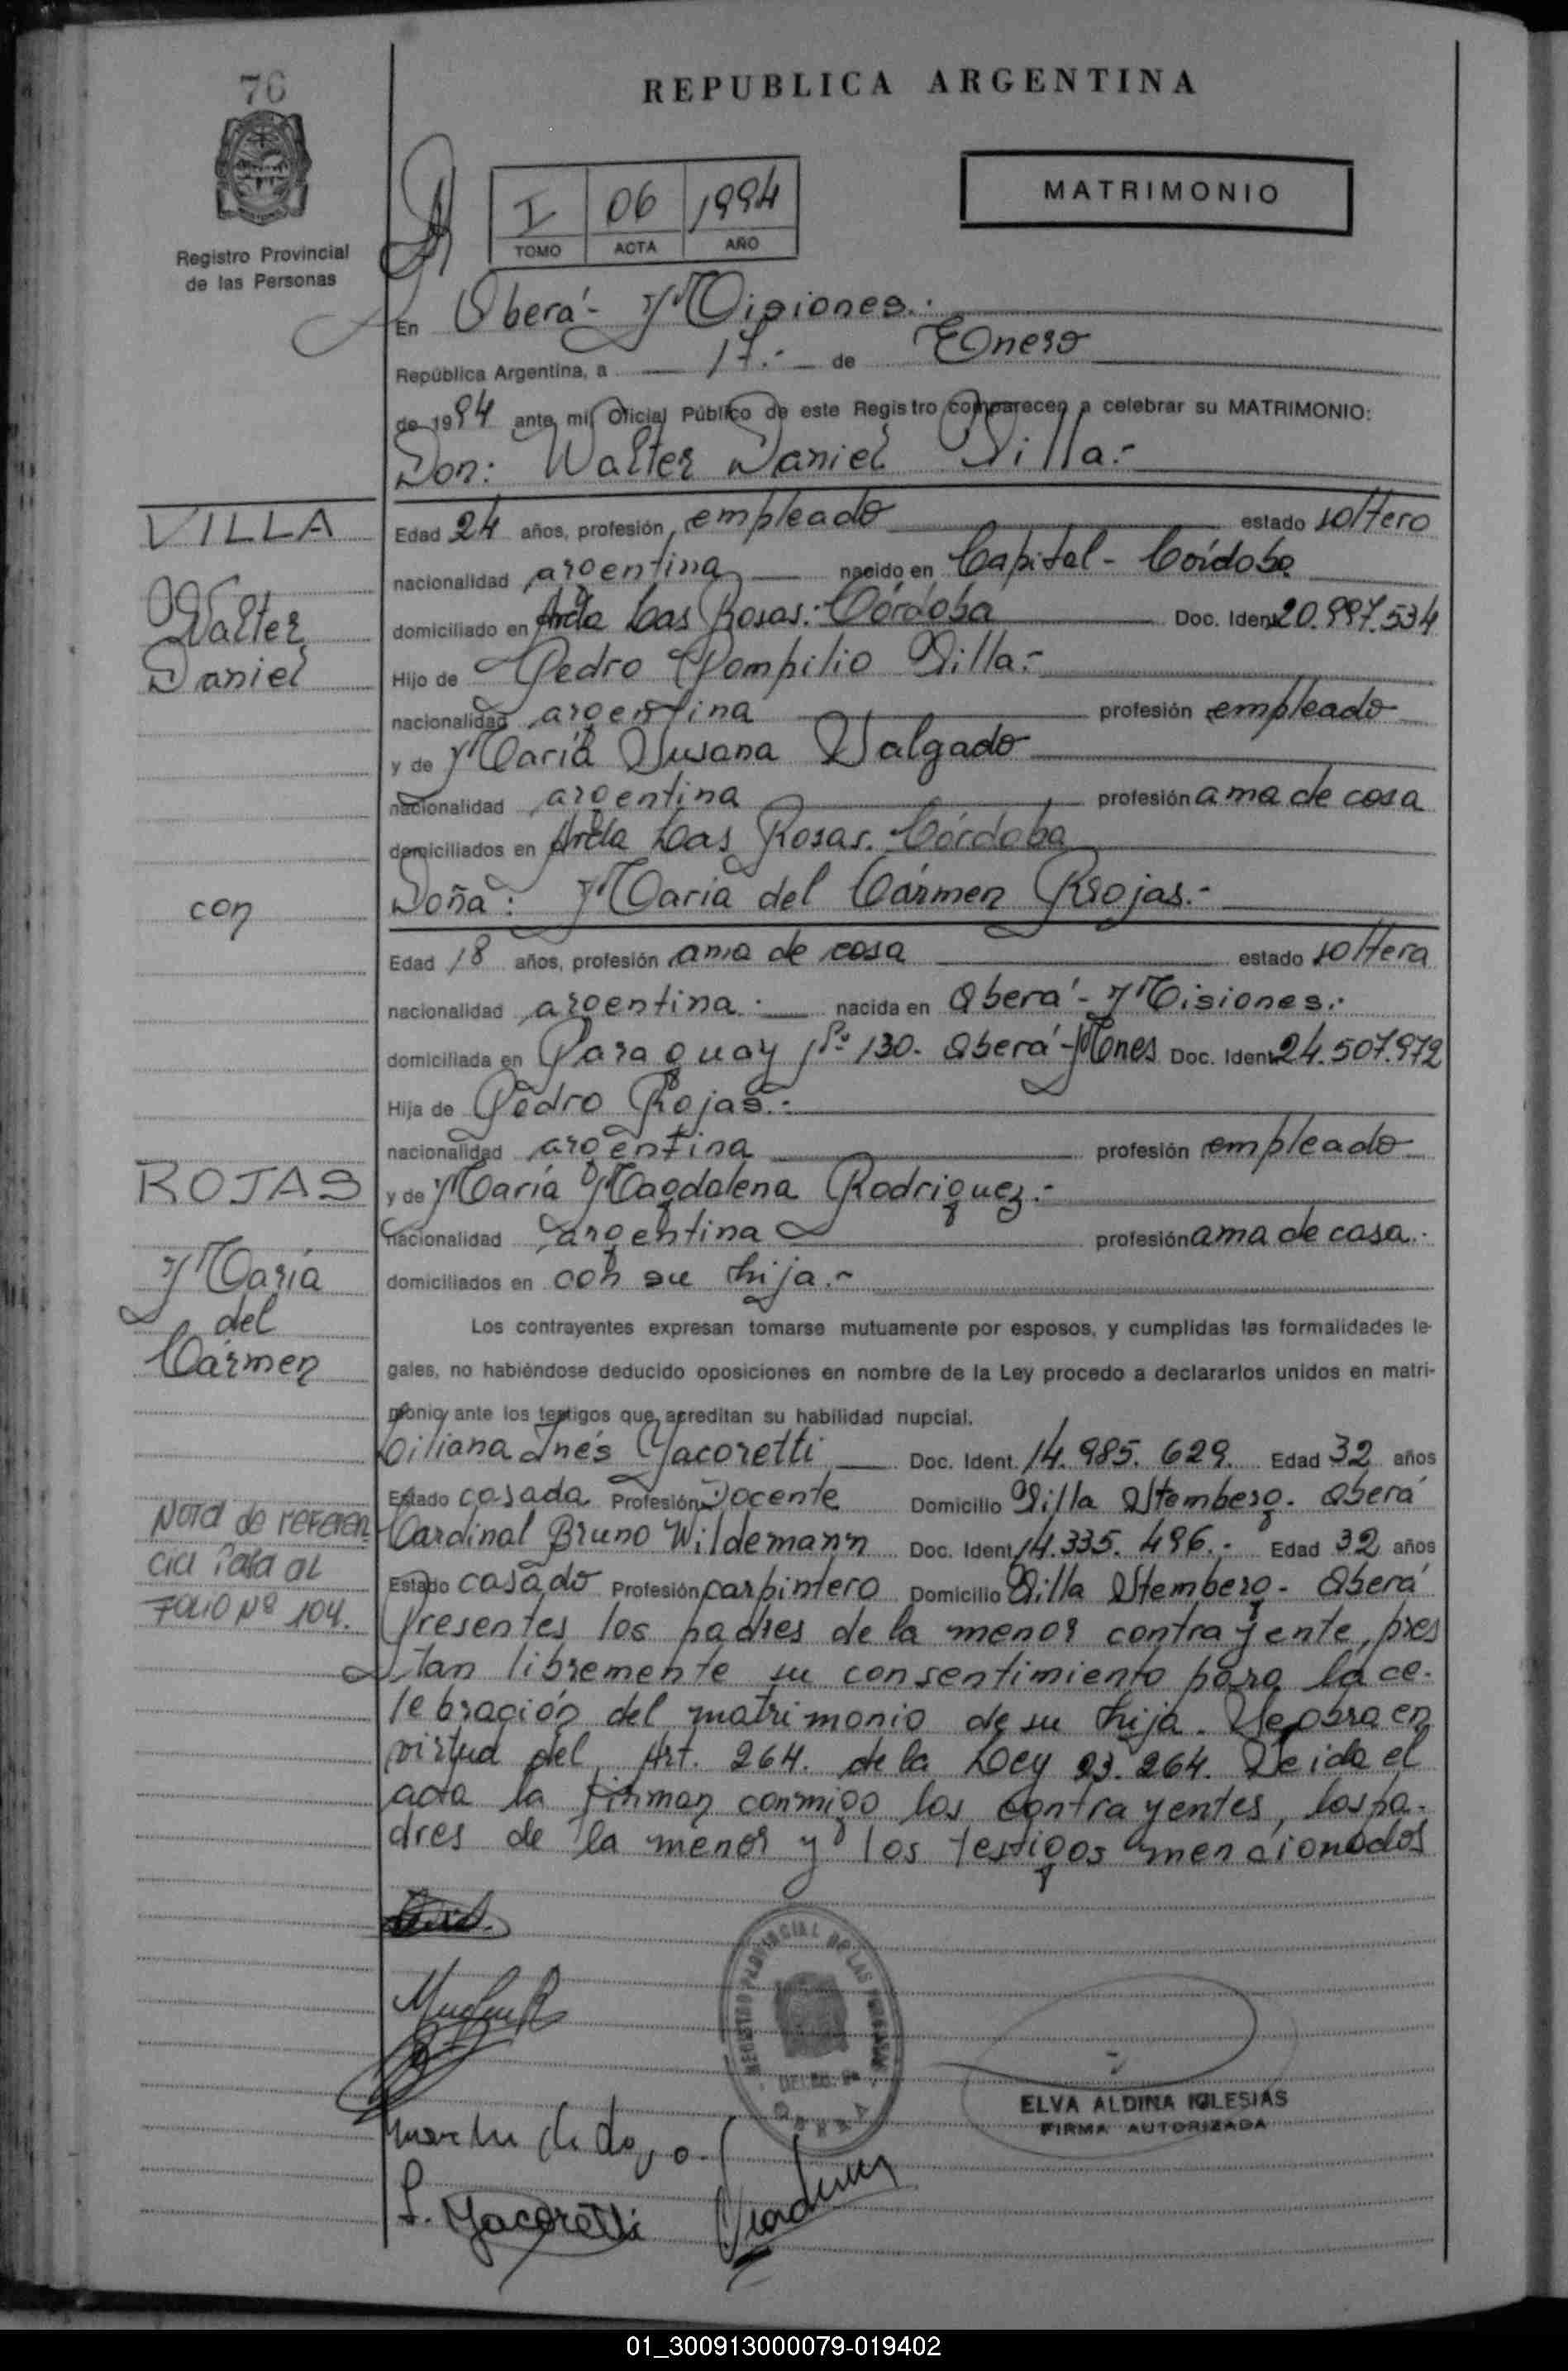 76
REPUBLICA ARGENTINA
Registro Provincial
de las Personas
I 06 1994
TOMO ACTA AÑO
MATRIMONIO
En Oberá - Misiones.-
República Argentina, a 17.- de Enero
de 1994 ante mí Oficial Público de este Registro comparecen a celebrar su MATRIMONIO:
Don: Walter Daniel Villa.-
VILLA
Walter
Daniel
Edad 24 años, profesión empleado estado soltero
nacionalidad argentina nacido en Capital - Córdoba
domiciliado en Las Rosas.- Córdoba Doc. Ident. 20.997.534
Hijo de Pedro Pompilio Villa.-
nacionalidad argentina profesión empleado
y de María Susana Salgado
nacionalidad argentina profesión ama de casa
domiciliados en Las Rosas. Córdoba
con
Doña: María del Cármen Rojas.-
Edad 18 años, profesión ama de casa estado soltera
nacionalidad argentina.- nacida en Oberá - Misiones.-
domiciliada en Paraguay Nº 130. Oberá - Mnes Doc. Ident. 24.507.972
Hija de Pedro Rojas.-
nacionalidad argentina profesión empleado
ROJAS
María
del
Cármen
y de María Magdalena Rodriguez.-
nacionalidad argentina profesión ama de casa.-
domiciliados en con su hija.-
Los contrayentes expresan tomarse mutuamente por esposos, y cumplidas las formalidades le-
gales, no habiéndose deducido oposiciones en nombre de la Ley procedo a declararlos unidos en matri-
monio ante los testigos que acreditan su habilidad nupcial.
Liliana Inés Yacoretti Doc. Ident. 14.985.629. Edad 32 años
Estado casada Profesión Docente Domicilio Villa Stemberg. Oberá
Cardinal Bruno Wildemann Doc. Ident. 14.335.496.- Edad 32 años
Estado casado Profesión carpintero Domicilio Villa Stemberg - Oberá
Nota de referen
cia Pasa al
FOLIO Nº 104.
Presentes los padres de la menor contrayente, pres
tan libremente su consentimiento para la ce-
lebración del matrimonio de su hija. Se obra en
virtud del Art. 264. de la Ley 23.264. Leida el
acta la firman conmigo los contrayentes, los pa-
dres de la menor y los testigos mencionados
REGISTRO PROVINCIAL DE LAS PERSONAS
OBERA
ELVA ALDINA IGLESIAS
FIRMA AUTORIZADA
L. Yacoretti
01_300913000079-019402